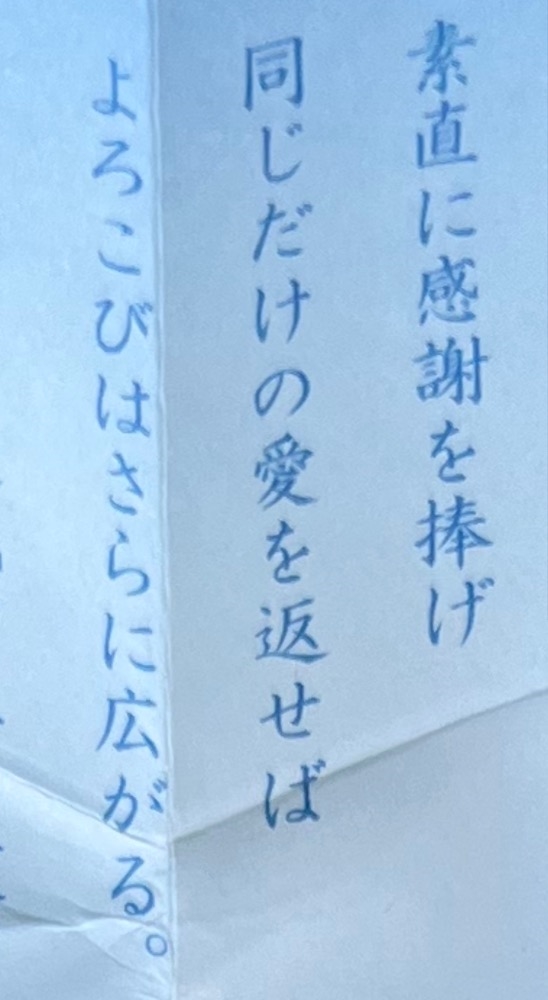 素直に感謝を捧げ
同じだけの愛を返せば
よろこびはさらに広がる。